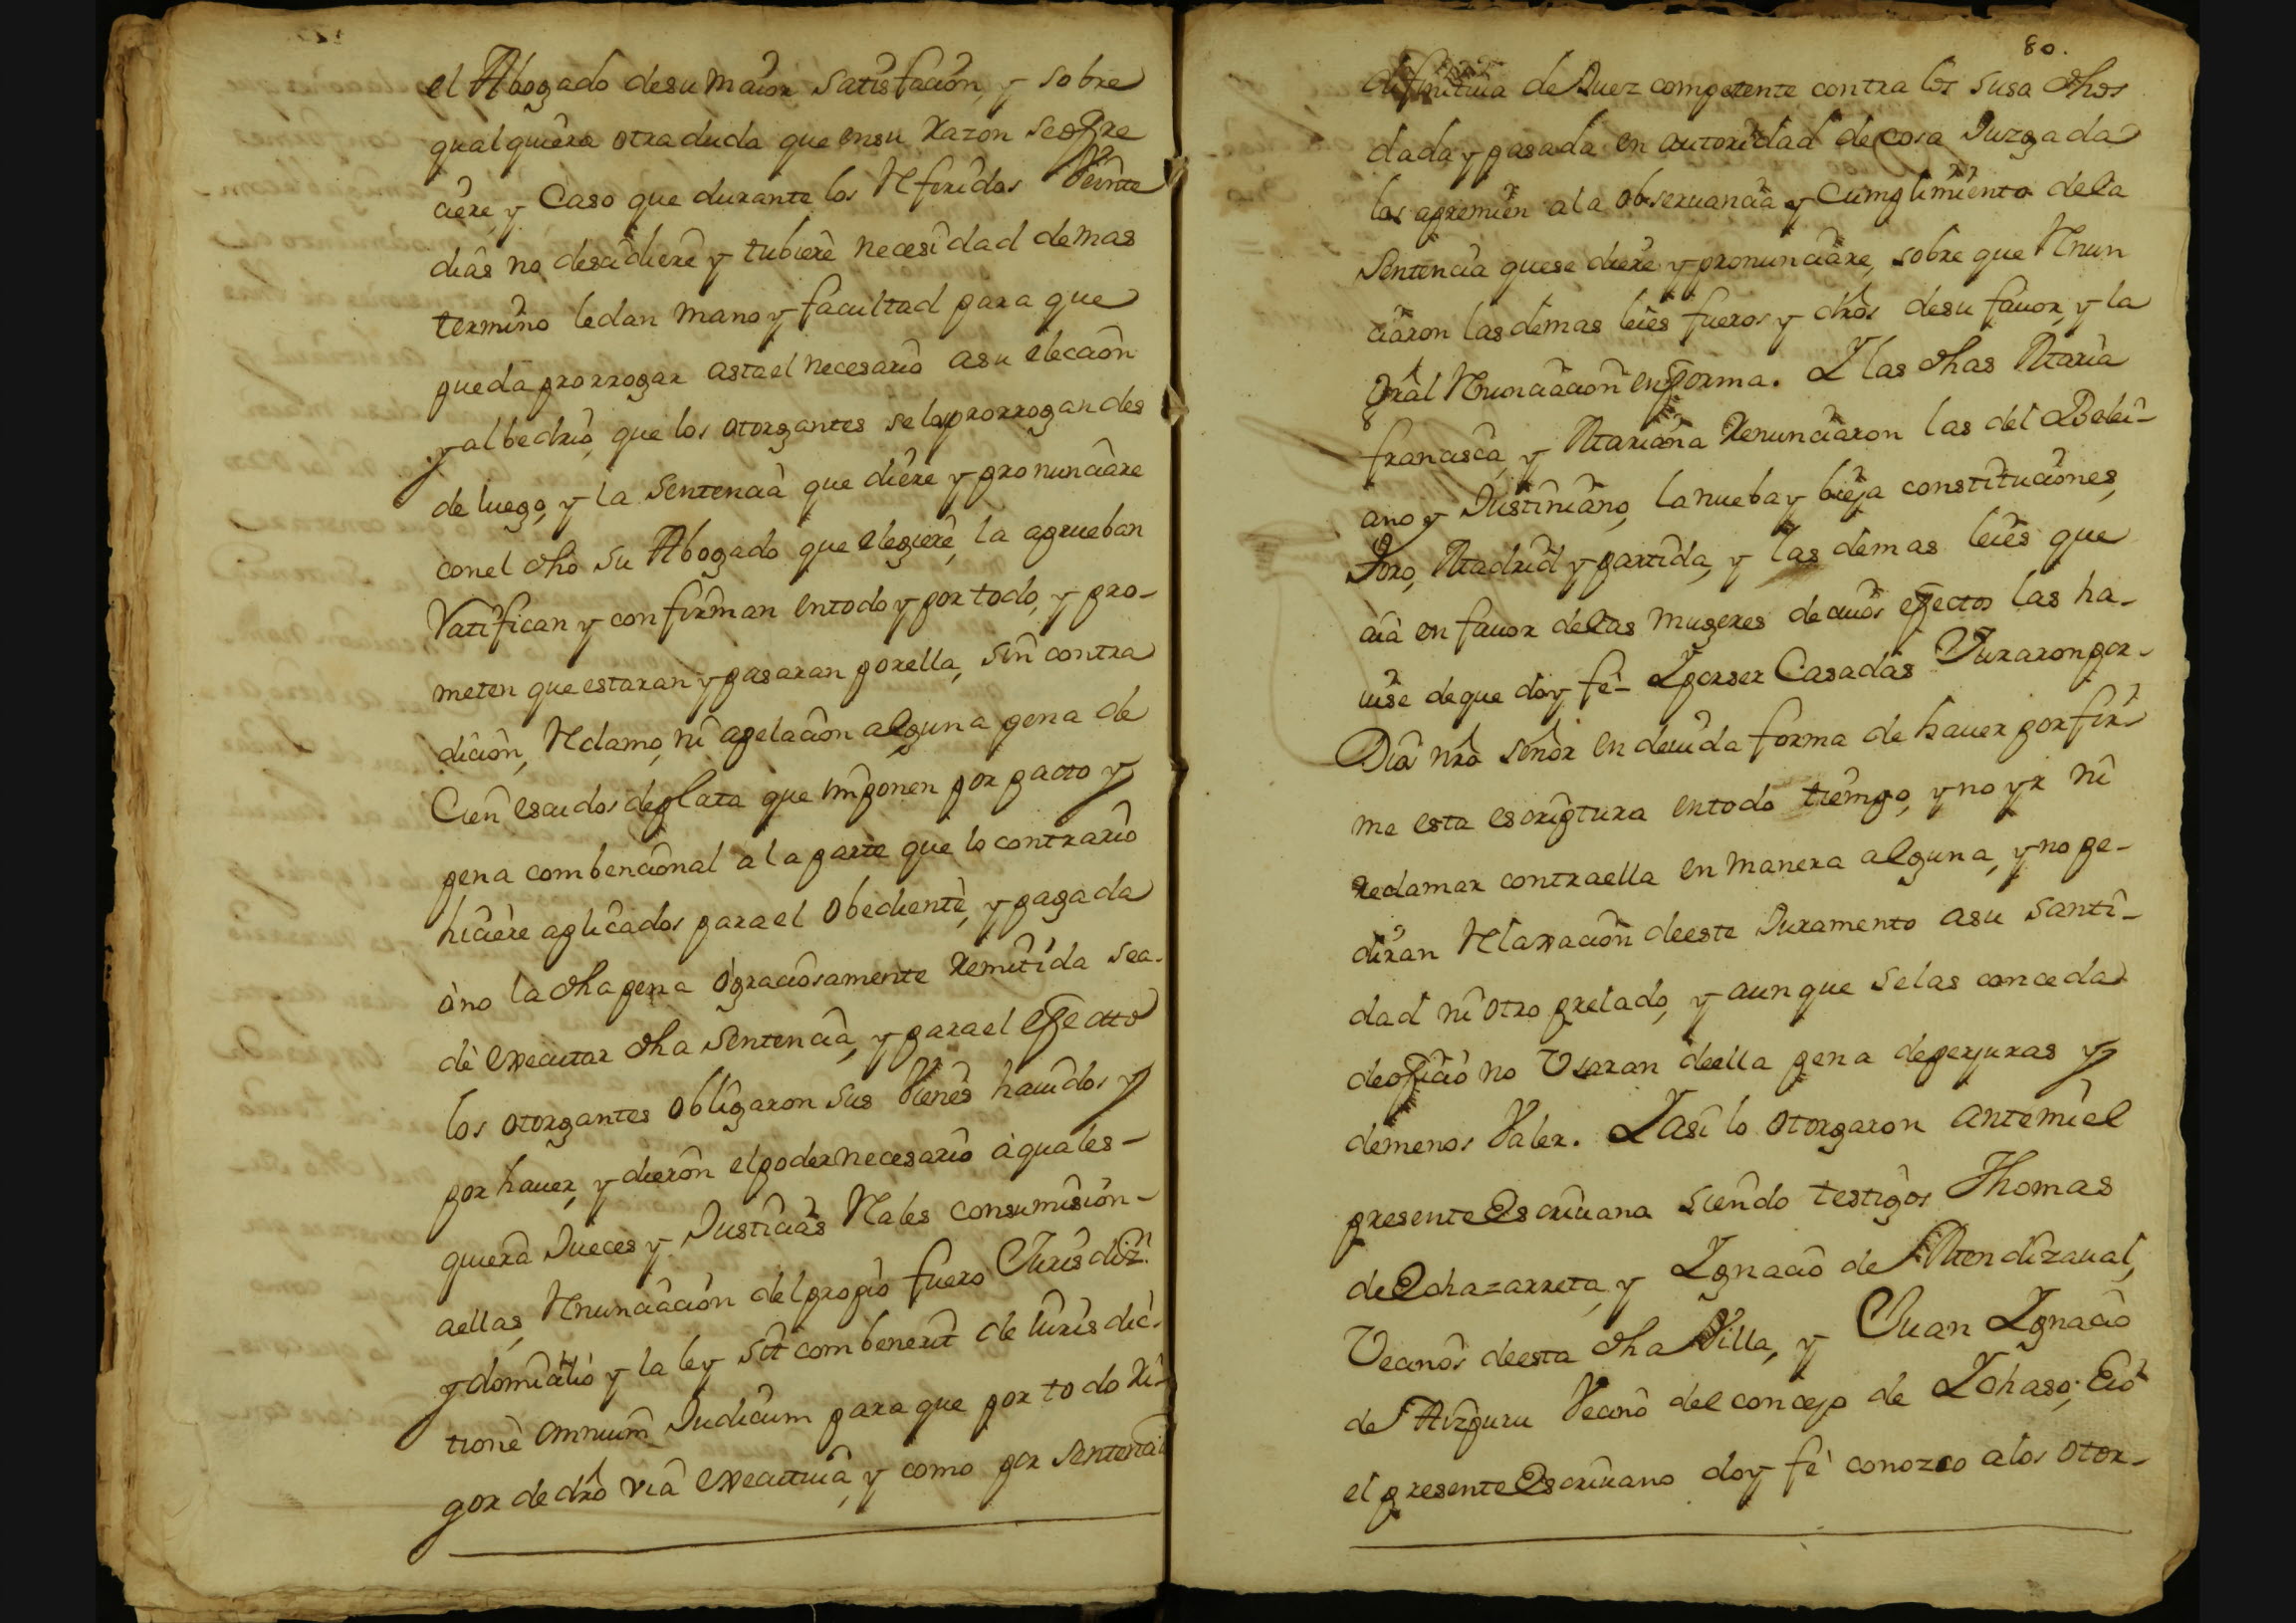 el Abogado desu maior satisfacion, y sobre
qualquiera otra duda que ensu razon seofre
ciere, y Caso que durante los Referidos Veinte
dias no desidiere y tubiere necesidad demas
termino ledan mano y facultad para que
pueda prorrogar asta el necesario asu eleccion
y albedrio, que los otorgantes selo prorrogan des
de luego, y la sentencia que diere y pronunciare
conel dho su Abogado que eligiere, la aprueban
Ratifican y confirman entodo y por todo, y pro-
meten que estaran y pasaran porella, sin contra
dicion, Reclamo, ni apelacion alguna pena de
Cien escudos deplata que imponen por pacto y
pena combencional a la parte que lo contrario
hiciere aplicados para el obediente, y pagada
ò no la dha pena ò graciosamente Remitida sea-
dè executar dha sentencia, y para el efecto
los otorgantes obligaron sus Vienes hauidos y
por hauer, y dieron el poder necesario à quales-
quiera Jueces y Justicias Rales consumision-
aellas, Renunciacion del propio fuero Jurisdizn
y domicilio y la ley sit combenerit de Iurisdic-
tione omnium Judicum para que por todo Ri-
gor de dro via executiua, y como por sentencia
80.
difinitiua de Juez competente contra los susa dhos
dada y pasada en autoridad de cosa Juzgada
los apremien ala obseruancia y Cumplimiento dela
sentencia quese diere y pronunciare, sobre que Renun
ciaron las demas leies fueros y dros desu fauor, y la
gral Renunciacion en forma. Y las dhas Maria
francisca, y Mariana Renunciaron las del Belei-
ano y Justiniano, la nueba y bieja constituciones,
Toro, Madrid y partida, y las demas leies que
acia en fauor delas mugeres de cuios efectos las ha-
uise de que doy fe- Y por ser Casadas Juraron por-
Dios nro señor en deuida forma de hauer por fir-
me esta escriptura entodo tiempo, y no yr ni
reclamar contraella en manera alguna, y no pe-
diran Relaxacion deeste Juramento asu santi-
dad ni otro prelado, y aunque selas conceda
deoficio no Vsaran deella pena deperjuras y
demenos Valer. Y asi lo otorgaron antemi el
presente Escriuano siendo testigos Thomas
de Echazarreta, y Ygnacio de Mendizaual,
Vecinos deesta dha Villa, y Juan Ygnacio
de Aizpuru Vecino del concejo de Ychaso; E io
el presente Escriuano doy fè conozco alos otor-